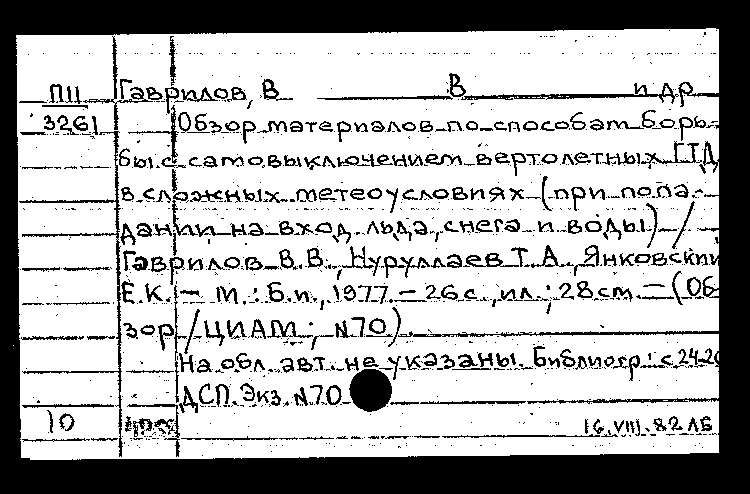 П11 Гаврилов, В В и др
3261 Обзор материалов по способам борь-
бы с самовыключением вертолетных ГТД
в сложных метеоусловиях (при попа-
дании на вход льда, снега и воды) /
Гаврилов В.В., Нуруллаев Т.А., Янковский
Е.К. – М.: Б.и., 1977. – 26 с., ил.; 28 cm. – (Об-
зор / ЦИАМ; N70).
На обл. авт. не указаны. Библиогр.: с 24-26
ДСП. Экз. N70
10 16.VIII.82 ЛБ